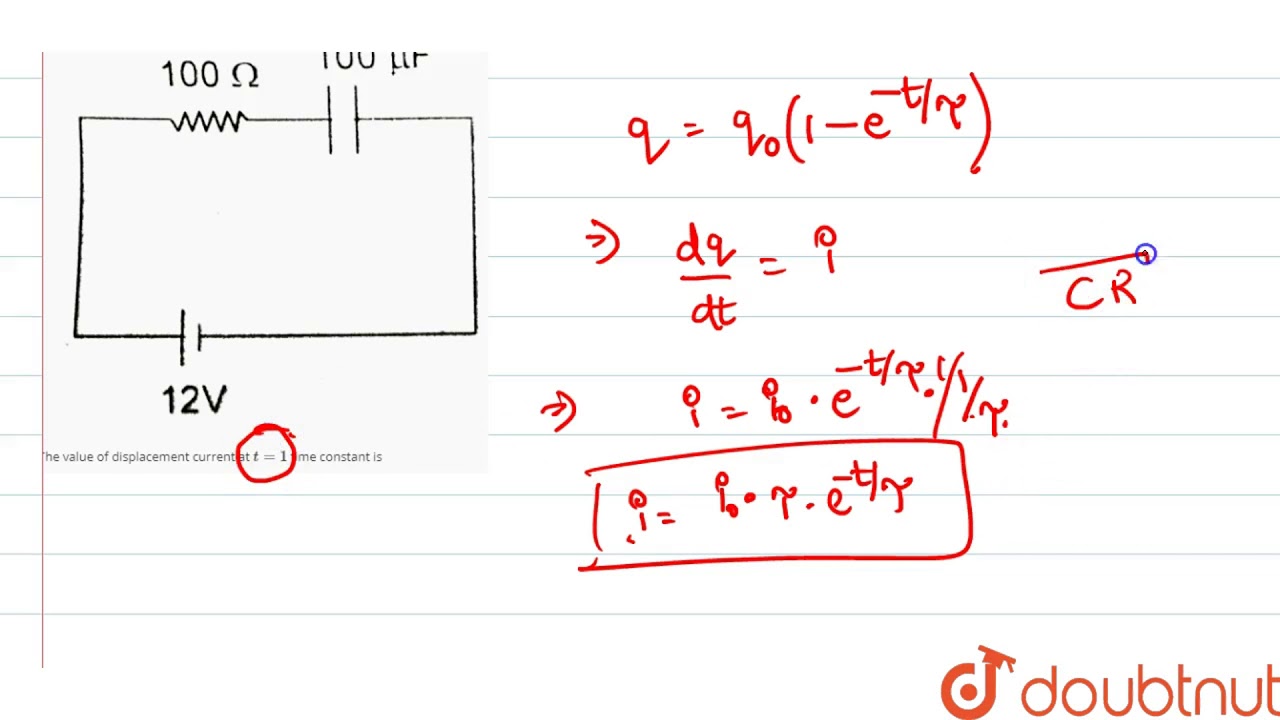 100 Ω
100 μF
12V
The value of displacement current at t = 1 time constant is
q = q₀(1 − e^{-t/τ})
⇒ dq/dt = i
CR
⇒ i = i₀ · e^{-t/τ} · 1/1/τ.
i = i₀ · τ · e^{-t/τ}
doubtnut